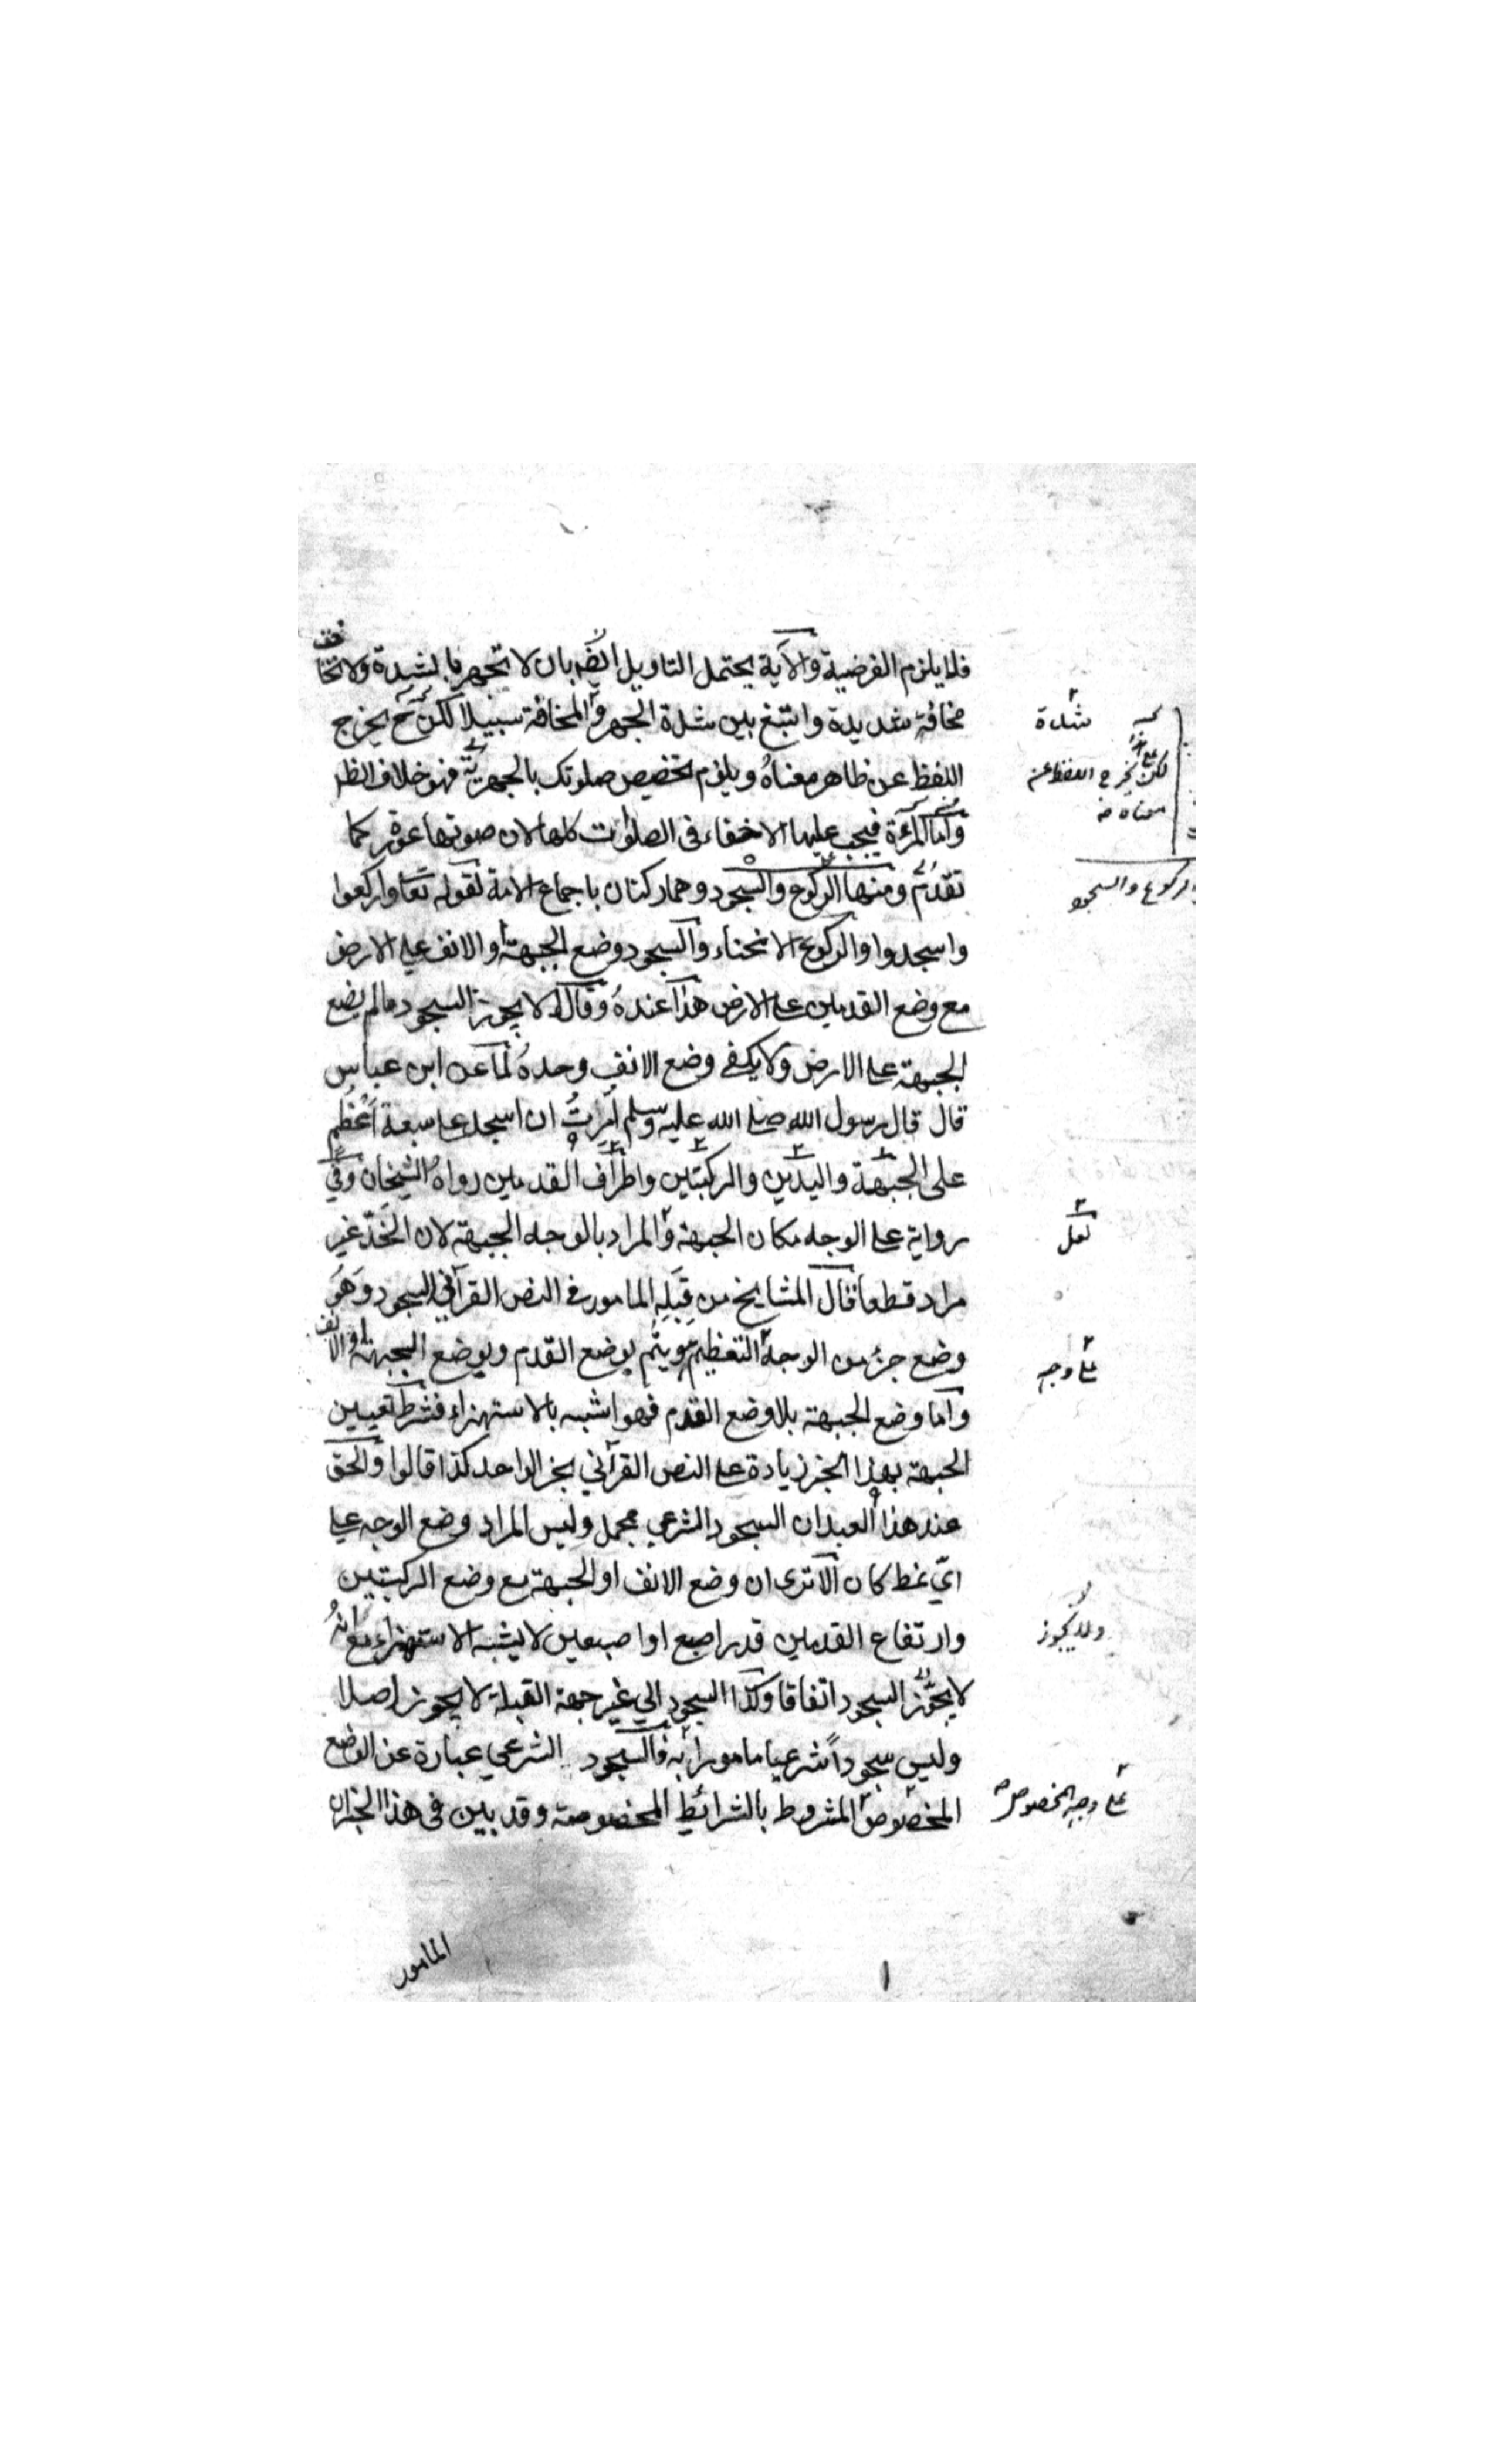 فلا يلزم الفرضية والآية يحتمل التاويل ايضا بان لا تجهر بالشدة ولا تخافت
مخافتة شديدة وابتغ بين شدة الجهر والمخافة سبيلا لكن ح يخرج
اللفظ عن ظاهر معناهُ ويلزم تخصيص صلوتك بالجهرية فهو خلاف الظ
واما المرءة فيجب عليها الاخفاء في الصلوات كلها لان صوتها عورة كما
تقدم ومنها الركوع والسجود وهما ركنان باجماع الامة لقوله تعا واركعوا
واسجدوا والركوع الانحناء والسجود وضع الجبهة او الانف على الارض
مع وضع القدمين على الارض هذا عندهُ وقالا لا يجوز السجود مالم يضع
الجبهة على الارض ولا يكفي وضع الانف وحدهُ لما عن ابن عباس
قال قال رسول الله صلى الله عليه وسلم اُمِرتُ ان اسجد على سبعة اَعْظُم
على الجبهة واليدين والركبتين واطراف القدمين رواهُ الشيخان وفي
رواية على الوجه مكان الجبهة والمراد بالوجه الجبهة لان الخدّ غير
مراد قطعا فقال المشايخ من قِبَلِهِ المامور في النص القرآني السجود وَهَوَ
وضع جزء من الوجه التعظيم ويتم بوضع القدم وبوضع الجبهة او الانف
واما وضع الجبهة بلا وضع القدم فهو اشبه بالاستهزاء فشرط تعيين
الجبهة بهذا الخبر زيادة على النص القرآني بخبر الواحد كذا قالوا والحق
عند هذا العبد ان السجود الشرعي مجمل وليس المراد وضع الوجه على
ايّ نمط كان الا ترى ان وضع الانف او الجبهة مع وضع الركبتين
وارتفاع القدمين قدر اصبع او اصبعين لا يشبه الاستهزاء مع انهُ
لا يجوّز السجود اتفاقا وكذا السجود الي غير جهة القبلة لا يجوز اصلا
وليس سجوداً شرعيا مامورا به فالسجود الشرعي عبارة عن الوضع
المخصوص المشروط بالشرائط المخصوصة وقد بين في هذا الخبر ان
المامور
شدة
لكن يخرج اللفظ عن
معناه
الركوع والسجود
لعل
على وجه
ولا يجوز
على وجه المخصوص